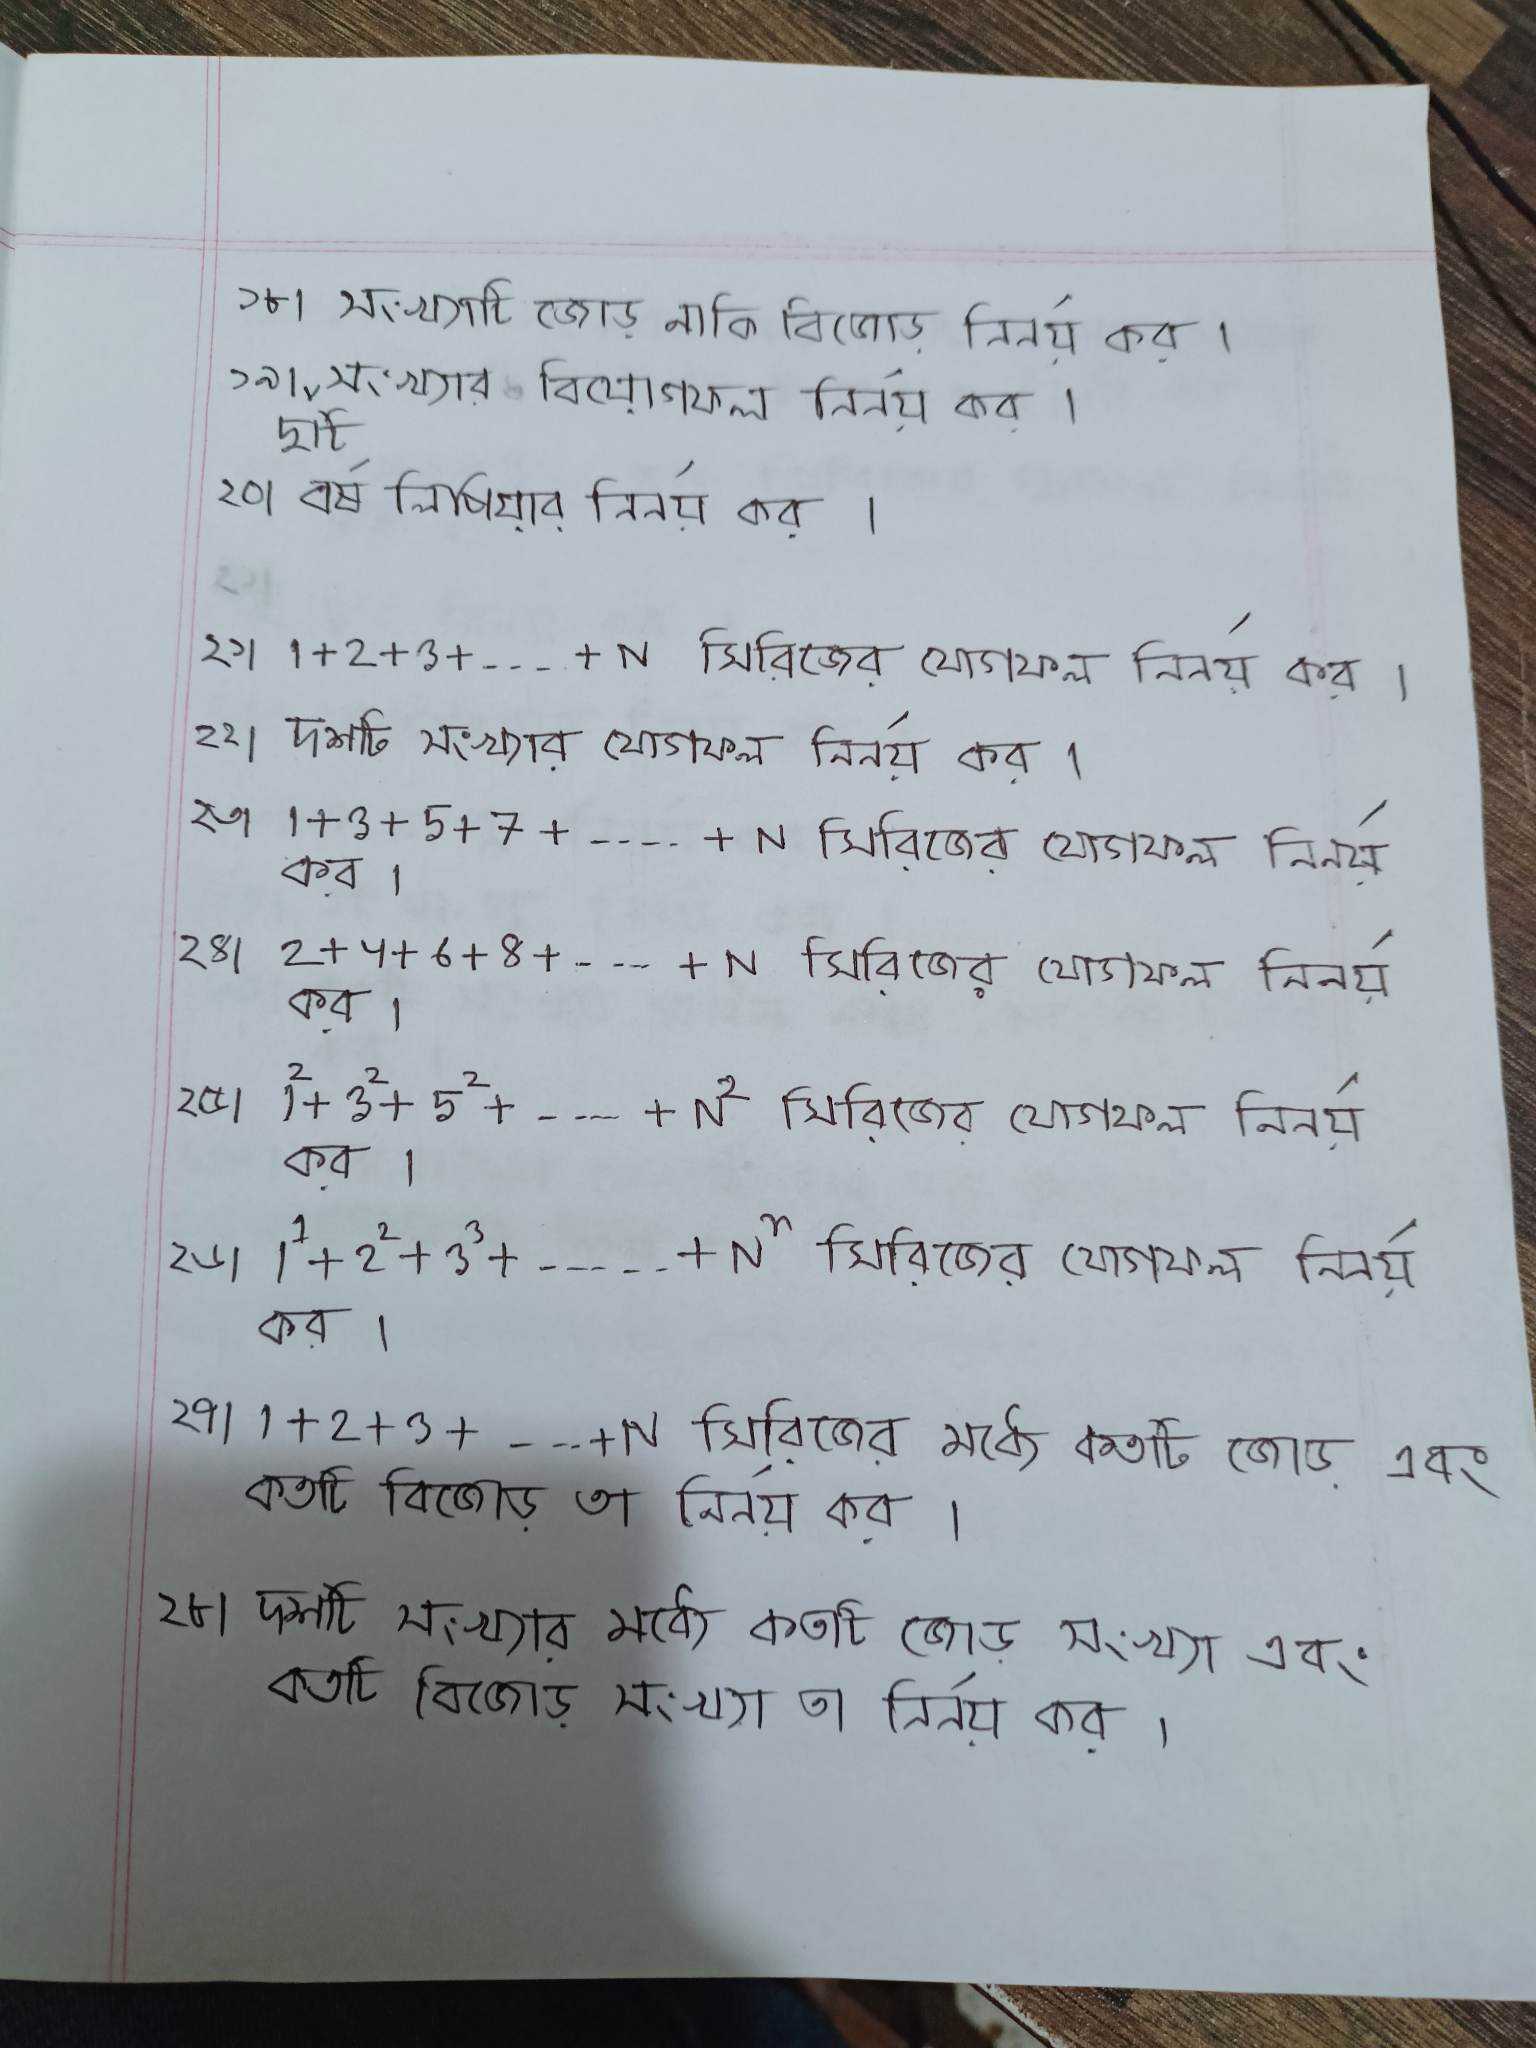 ১৮। সংখ্যাটি জোড় নাকি বিজোড় নির্নয় কর ।
১৯। সংখ্যার বিয়োগফল নির্নয় কর ।
দুটি
২০। বর্ষ লিপিয়ার নির্নয় কর ।
২১। 1+2+3+---- +N সিরিজের যোগফল নির্নয় কর ।
২২। দশটি সংখ্যার যোগফল নির্নয় কর ।
২৩ 1+3+5+7+----- +N সিরিজের যোগফল নির্নয়
কর ।
২৪। 2+4+6+8+---- +N সিরিজের যোগফল নির্নয়
কর ।
২৫। 1²+3²+5²+---- +N² সিরিজের যোগফল নির্নয়
কর ।
২৬। 1¹+2²+3³+------+Nⁿ সিরিজের যোগফল নির্নয়
কর ।
২৭। 1+2+3+ ----+N সিরিজের মর্ধ্যে কতটি জোড় এবং
কতটি বিজোড় তা নির্নয় কর ।
২৮। দশটি সংখ্যার মর্ধ্যে কতটি জোড় সংখ্যা এবং
কতটি বিজোড় সংখ্যা তা নির্নয় কর ।